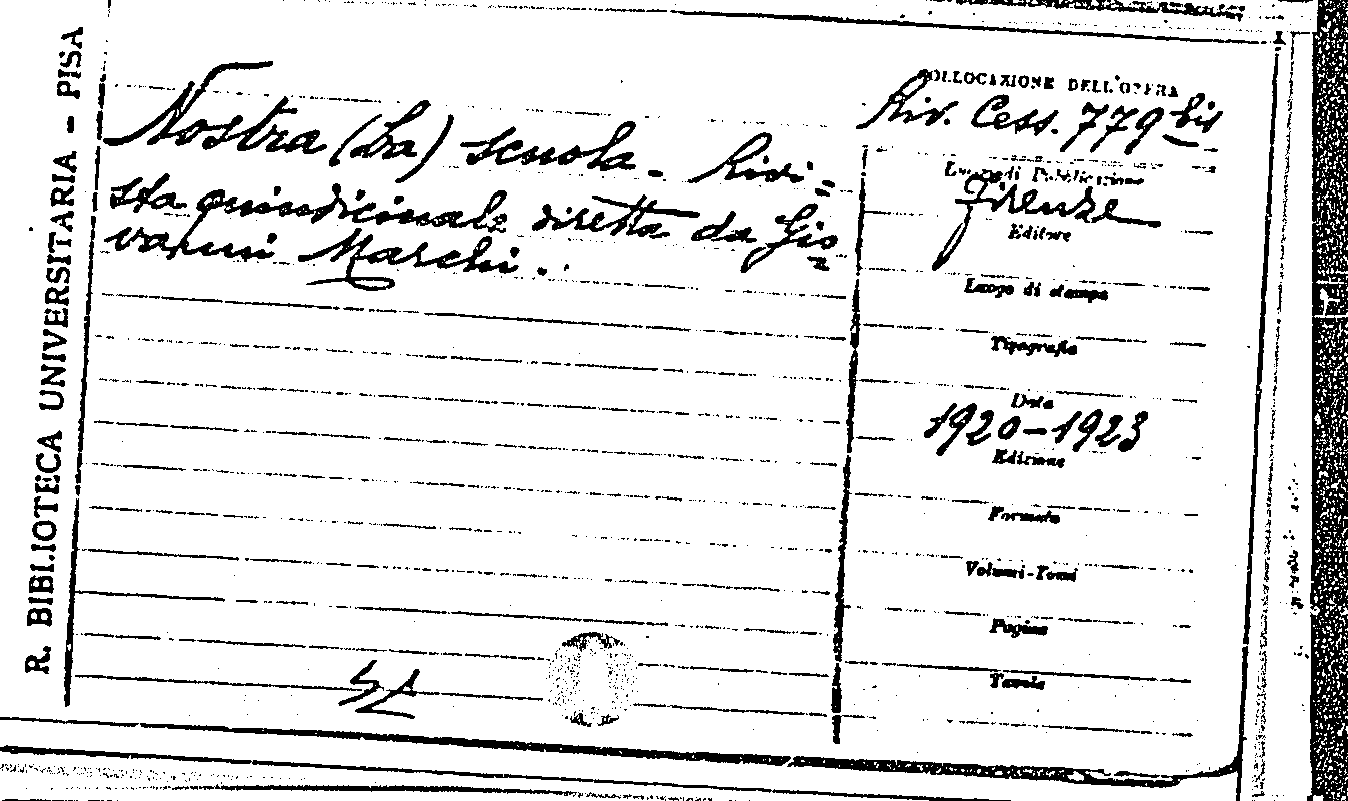 R. BIBLIOTECA UNIVERSITARIA - PISA
Nostra (La) scuola - Rivi=
sta quindicinale diretta da Gio=
vanni Marchi.
COLLOCAZIONE DELL'OPERA
Riv. Cess. 779 bis
Luogo di Pubblicazione
Firenze
Editore
Luogo di stampa
Tipografia
Data
1920-1923
Edizione
Formato
Volumi-Tomi
Pagine
Tavole